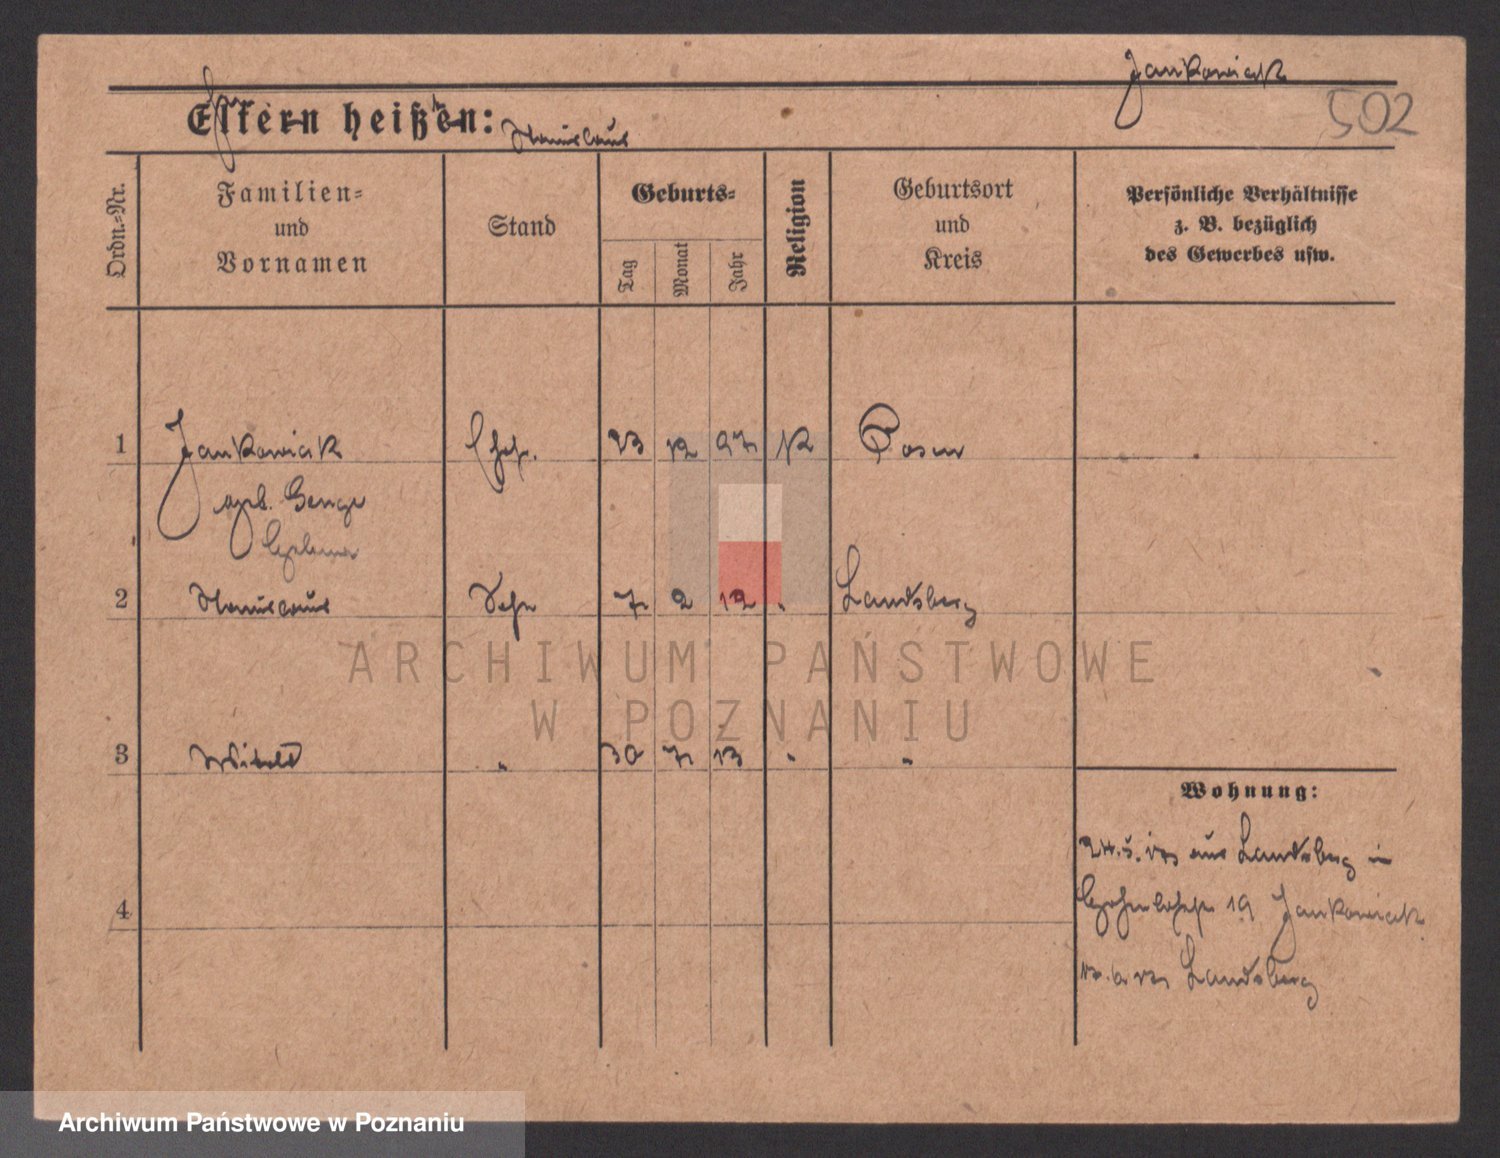 Jankowiak
502
Eltern heißen:
Stanislaus
Ordn.=Nr.
Familien=
und
Vornamen
Stand
Geburts=
Tag
Monat
Jahr
Religion
Geburtsort
und
Kreis
Persönliche Verhältnisse
z. B. bezüglich
des Gewerbes usw.
1 Jankowiak Ehefr. 23 12 97 K Posen
geb.
2 Stanislaus Sohn 7 2 12 " Landsberg
3 Witold " 30 7 13 " "
4
Wohnung:
24.5. aus Landsberg in
19 Jankowiak
Landsberg
ARCHIWUM PAŃSTWOWE
W POZNANIU
Archiwum Państwowe w Poznaniu